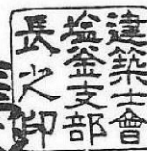 建築士會
塩釜支部
長之印